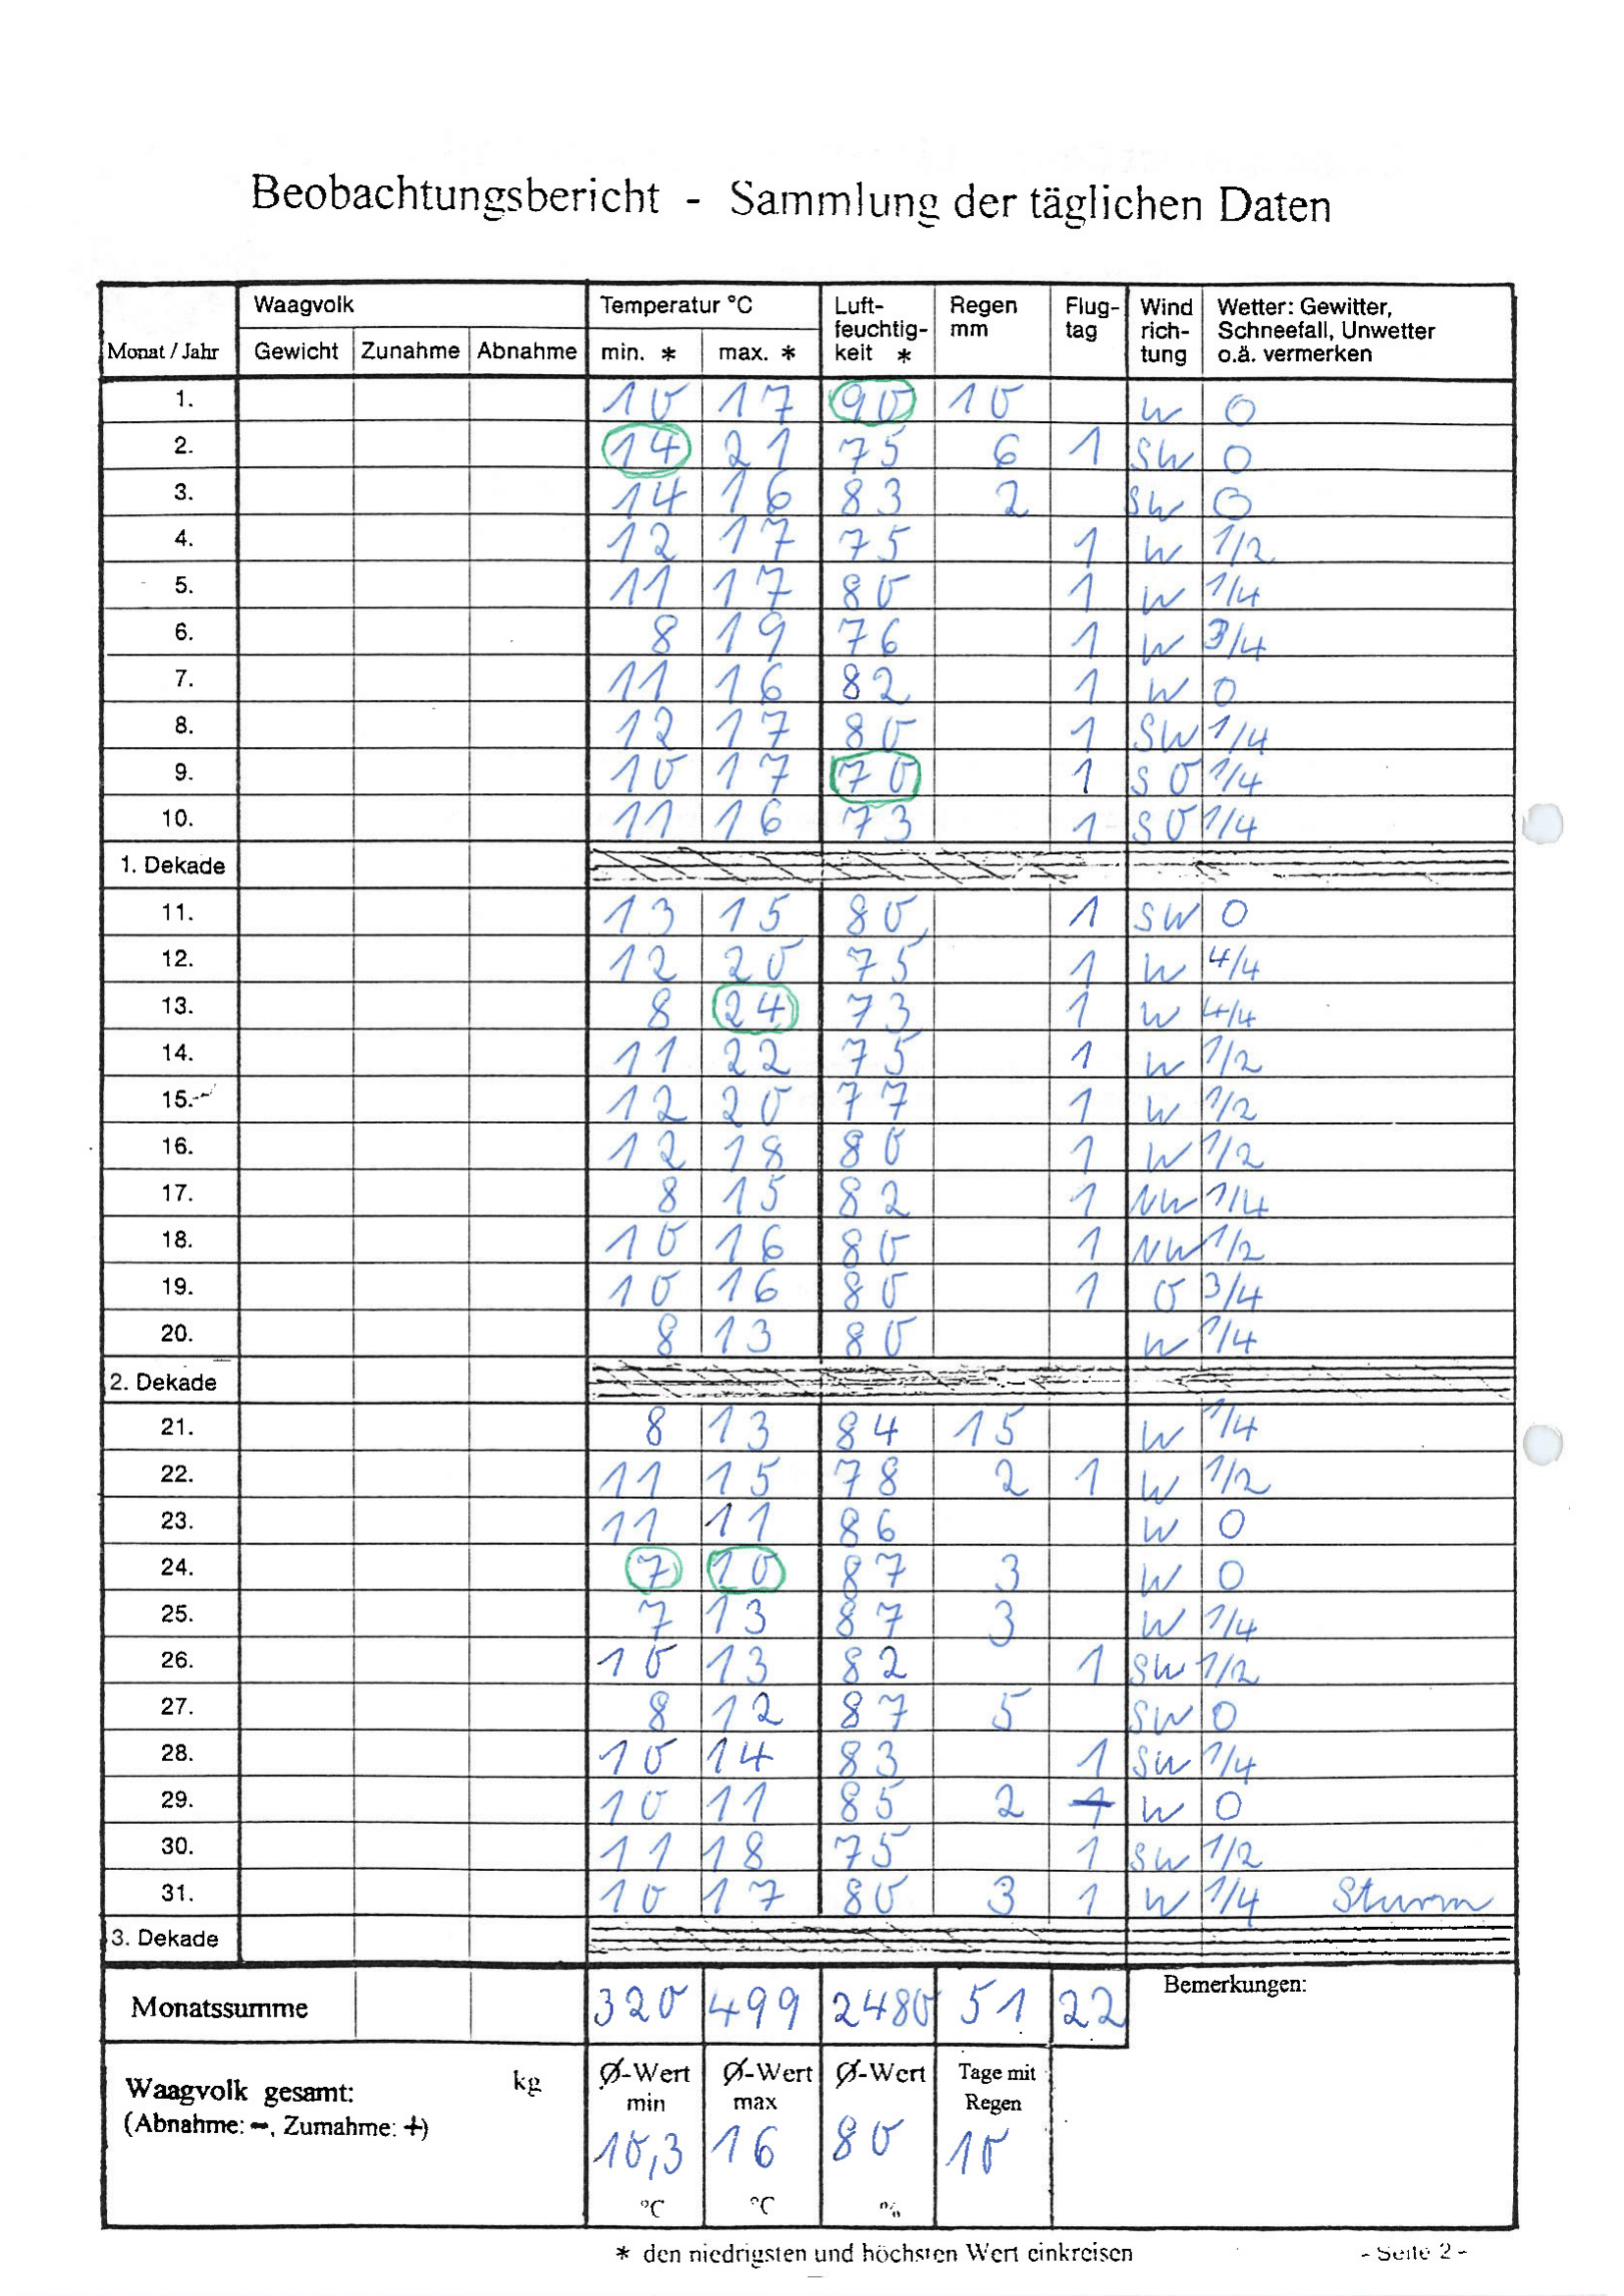 Beobachtungsbericht - Sammlung der täglichen Daten
Monat / Jahr Waagvolk Temperatur °C Luft-feuchtig-keit * Regen mm Flug-tag Wind rich-tung Wetter: Gewitter, Schneefall, Unwetter o.ä. vermerken
Gewicht Zunahme Abnahme min. * max. *
1. 10 17 90 10 W 0
2. 14 21 75 6 1 SW 0
3. 14 16 83 2 SW 0
4. 12 17 75 1 W 1/2
5. 11 17 80 1 W 1/4
6. 8 19 76 1 W 3/4
7. 11 16 82 1 W 0
8. 12 17 80 1 SW 1/4
9. 10 17 70 1 SO 1/4
10. 11 16 73 1 SO 1/4
1. Dekade
11. 13 15 80 1 SW 0
12. 12 20 75 1 W 4/4
13. 8 24 73 1 W 4/4
14. 11 22 75 1 W 1/2
15. 12 20 77 1 W 1/2
16. 12 18 80 1 W 1/2
17. 8 15 82 1 NW 1/4
18. 10 16 80 1 NW 1/2
19. 10 16 80 1 O 3/4
20. 8 13 80 W 1/4
2. Dekade
21. 8 13 84 15 W 1/4
22. 11 15 78 2 1 W 1/2
23. 11 11 86 W 0
24. 7 10 87 3 W 0
25. 7 13 87 3 W 1/4
26. 10 13 82 1 SW 1/2
27. 8 12 87 5 SW 0
28. 10 14 83 1 SW 1/4
29. 10 11 85 2 1 W 0
30. 11 18 75 1 SW 1/2
31. 10 17 80 3 1 W 1/4 Sturm
3. Dekade
Monatssumme 320 499 2480 51 22 Bemerkungen:
Waagvolk gesamt: kg Ø-Wert min Ø-Wert max Ø-Wert Tage mit Regen
(Abnahme: -, Zumahme: +) 10,3 16 80 10
°C °C %
* den niedrigsten und höchsten Wert einkreisen - Seite 2 -